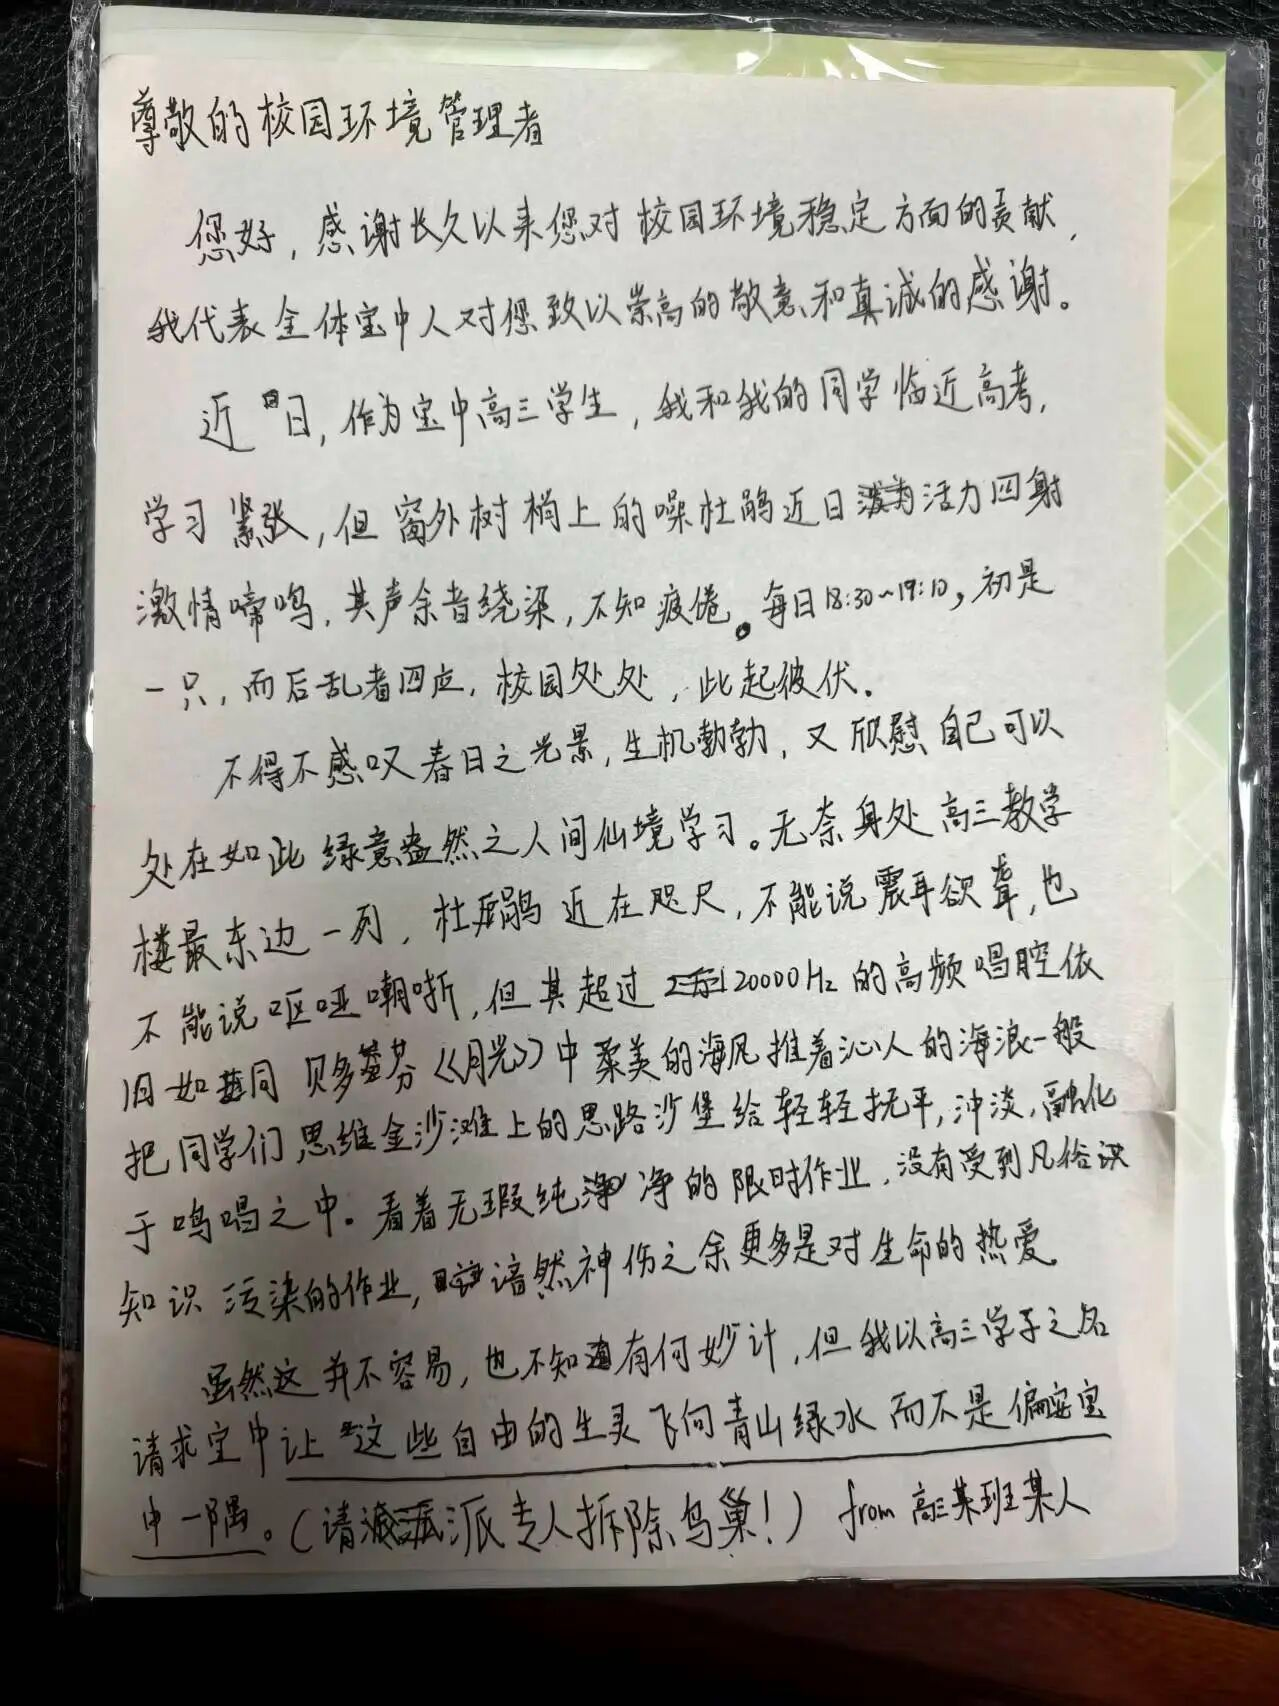 尊敬的校园环境管理者
您好，感谢长久以来您对校园环境稳定方面的贡献，
我代表全体宝中人对您致以崇高的敬意和真诚的感谢。
近日，作为宝中高三学生，我和我的同学临近高考，
学习紧张，但窗外树梢上的噪杜鹃近日活力四射
激情啼鸣，其声余音绕梁，不知疲倦。每日18:30~19:10，初是
一只，而后乱者四应，校园处处，此起彼伏．
不得不感叹春日之光景，生机勃勃，又欣慰自己可以
处在如此绿意盎然之人间仙境学习。无奈身处高三教学
楼最东边一列，杜鹃近在咫尺，不能说震耳欲聋，也
不能说呕哑嘲哳，但其超过20000Hz的高频唱腔依
旧如同贝多芬《月光》中柔美的海风推着沁人的海浪一般
把同学们思维金沙滩上的思路沙堡给轻轻抚平，冲淡，融化
于鸣唱之中。看着无瑕纯净的限时作业，没有受到凡俗识
知识污染的作业，谙然神伤之余更多是对生命的热爱．
虽然这并不容易，也不知有何妙计，但我以高三学子之名
请求宝中让这些自由的生灵飞向青山绿水而不是偏安宝
中一隅。（请派专人拆除鸟巢！） from 高三某班某人